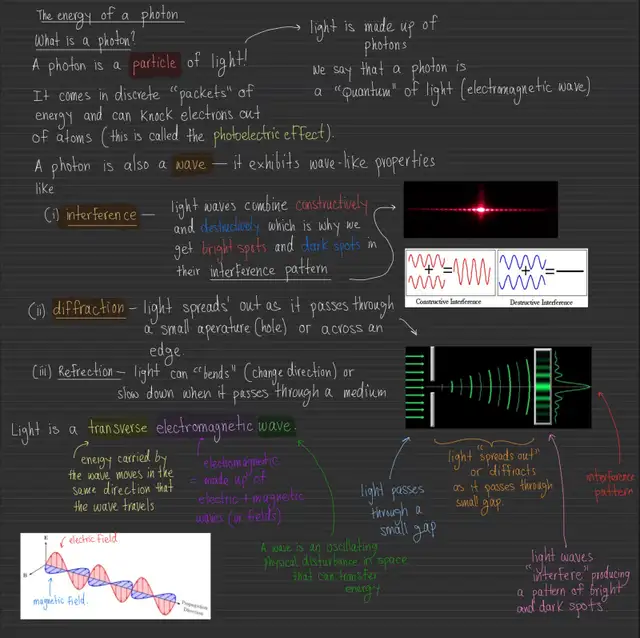 The energy of a photon
What is a photon?
A photon is a particle of light!
light is made up of
photons
we say that a photon is
a "Quantum" of light (electromagnetic wave)
It comes in discrete "packets" of
energy and can knock electrons out
of atoms (this is called the photoelectric effect).
A photon is also a wave — it exhibits wave-like properties
like
(i) interference — light waves combine constructively
and destructively which is why we
get bright spots and dark spots in
their interference pattern
Constructive Interference
Destructive Interference
(ii) diffraction — light 'spreads' out as it passes through
a small aperature (hole) or across an
edge.
(iii) Refrection — light can "bends" (change direction) or
slow down when it passes through a medium
Light is a transverse electromagnetic wave.
energy carried by
the wave moves in the
same direction that
the wave travels
electromagnetic
= made up of
electric + magnetic
waves (or fields)
A wave is an oscillating
physical disturbance in space
that can transfer
energy
light passes
through a
small gap
light "spreads out"
or diffracts
as it passes through
small gap.
interference
pattern
light waves
"interfere" producing
a pattern of bright
and dark spots.
electric field
magnetic field.
E
B
Propagation
Direction